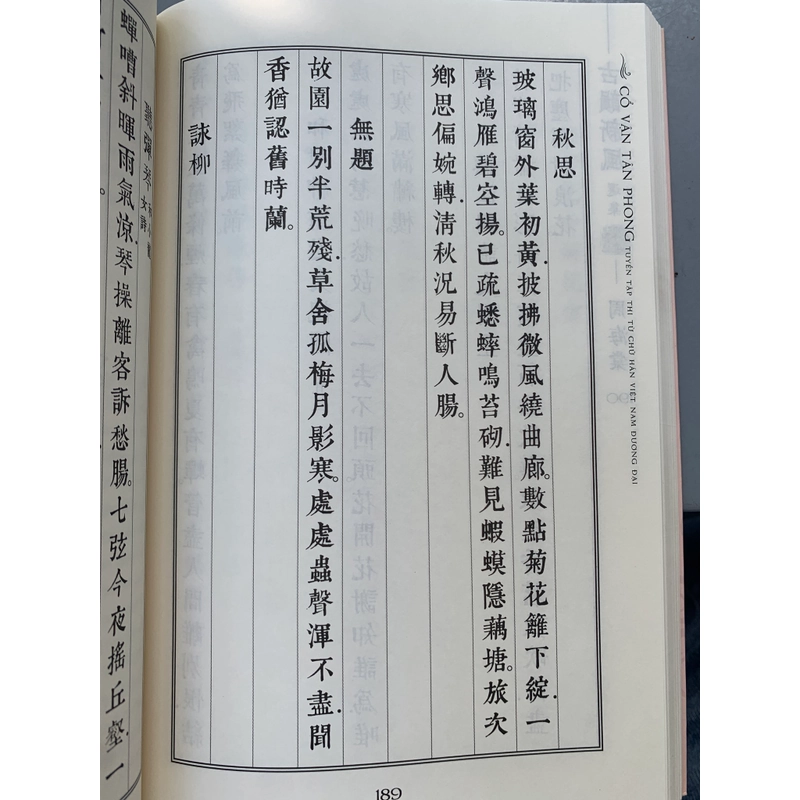 CỔ VẬN TÂN PHONG TUYỂN TẬP THI TỪ CHỮ HÁN VIỆT NAM ĐƯƠNG ĐẠI
秋思
玻璃窗外葉初黃.披拂微風繞曲廊。數點菊花籬下綻.一
聲鴻雁碧空揚。已疏蟋蟀鳴苔砌.難見蝦蟆隱藕塘。旅次
鄉思偏婉轉.淸秋況易斷人腸。
無題
故園一別半荒殘.草舍孤梅月影寒.處處蟲聲渾不盡.聞
香猶認舊時蘭。
詠柳
189
聽彈琴
蟬嘈斜暉雨氣涼.琴操離客訴愁腸。七弦今夜搖丘壑.一